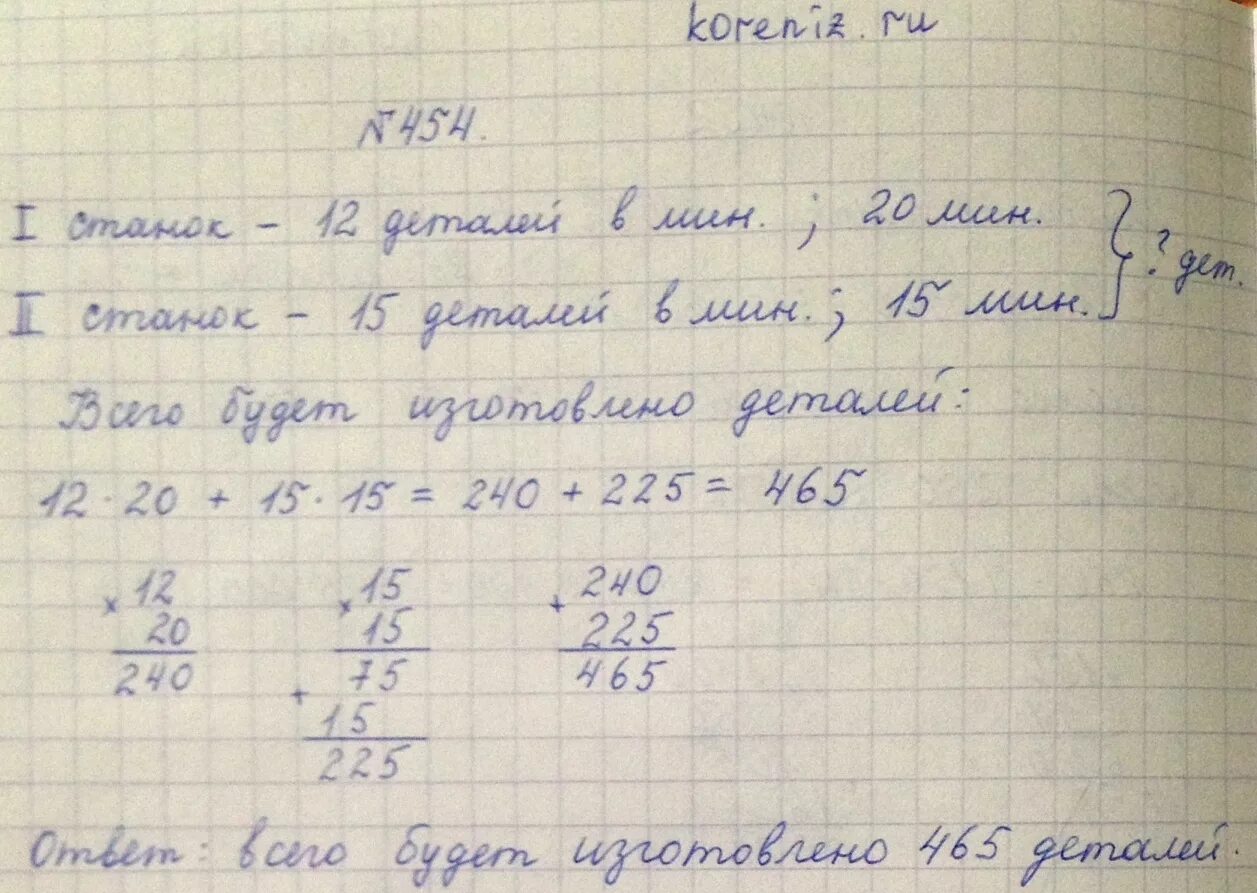 koreniz.ru
№454.
I станок - 12 деталей в мин. ; 20 мин.
? дет.
II станок - 15 деталей в мин. ; 15 мин.
Всего будет изготовлено деталей:
12 · 20 + 15 · 15 = 240 + 225 = 465
× 12
20
240
× 15
15
+ 75
15
225
+ 240
225
465
Ответ: всего будет изготовлено 465 деталей.